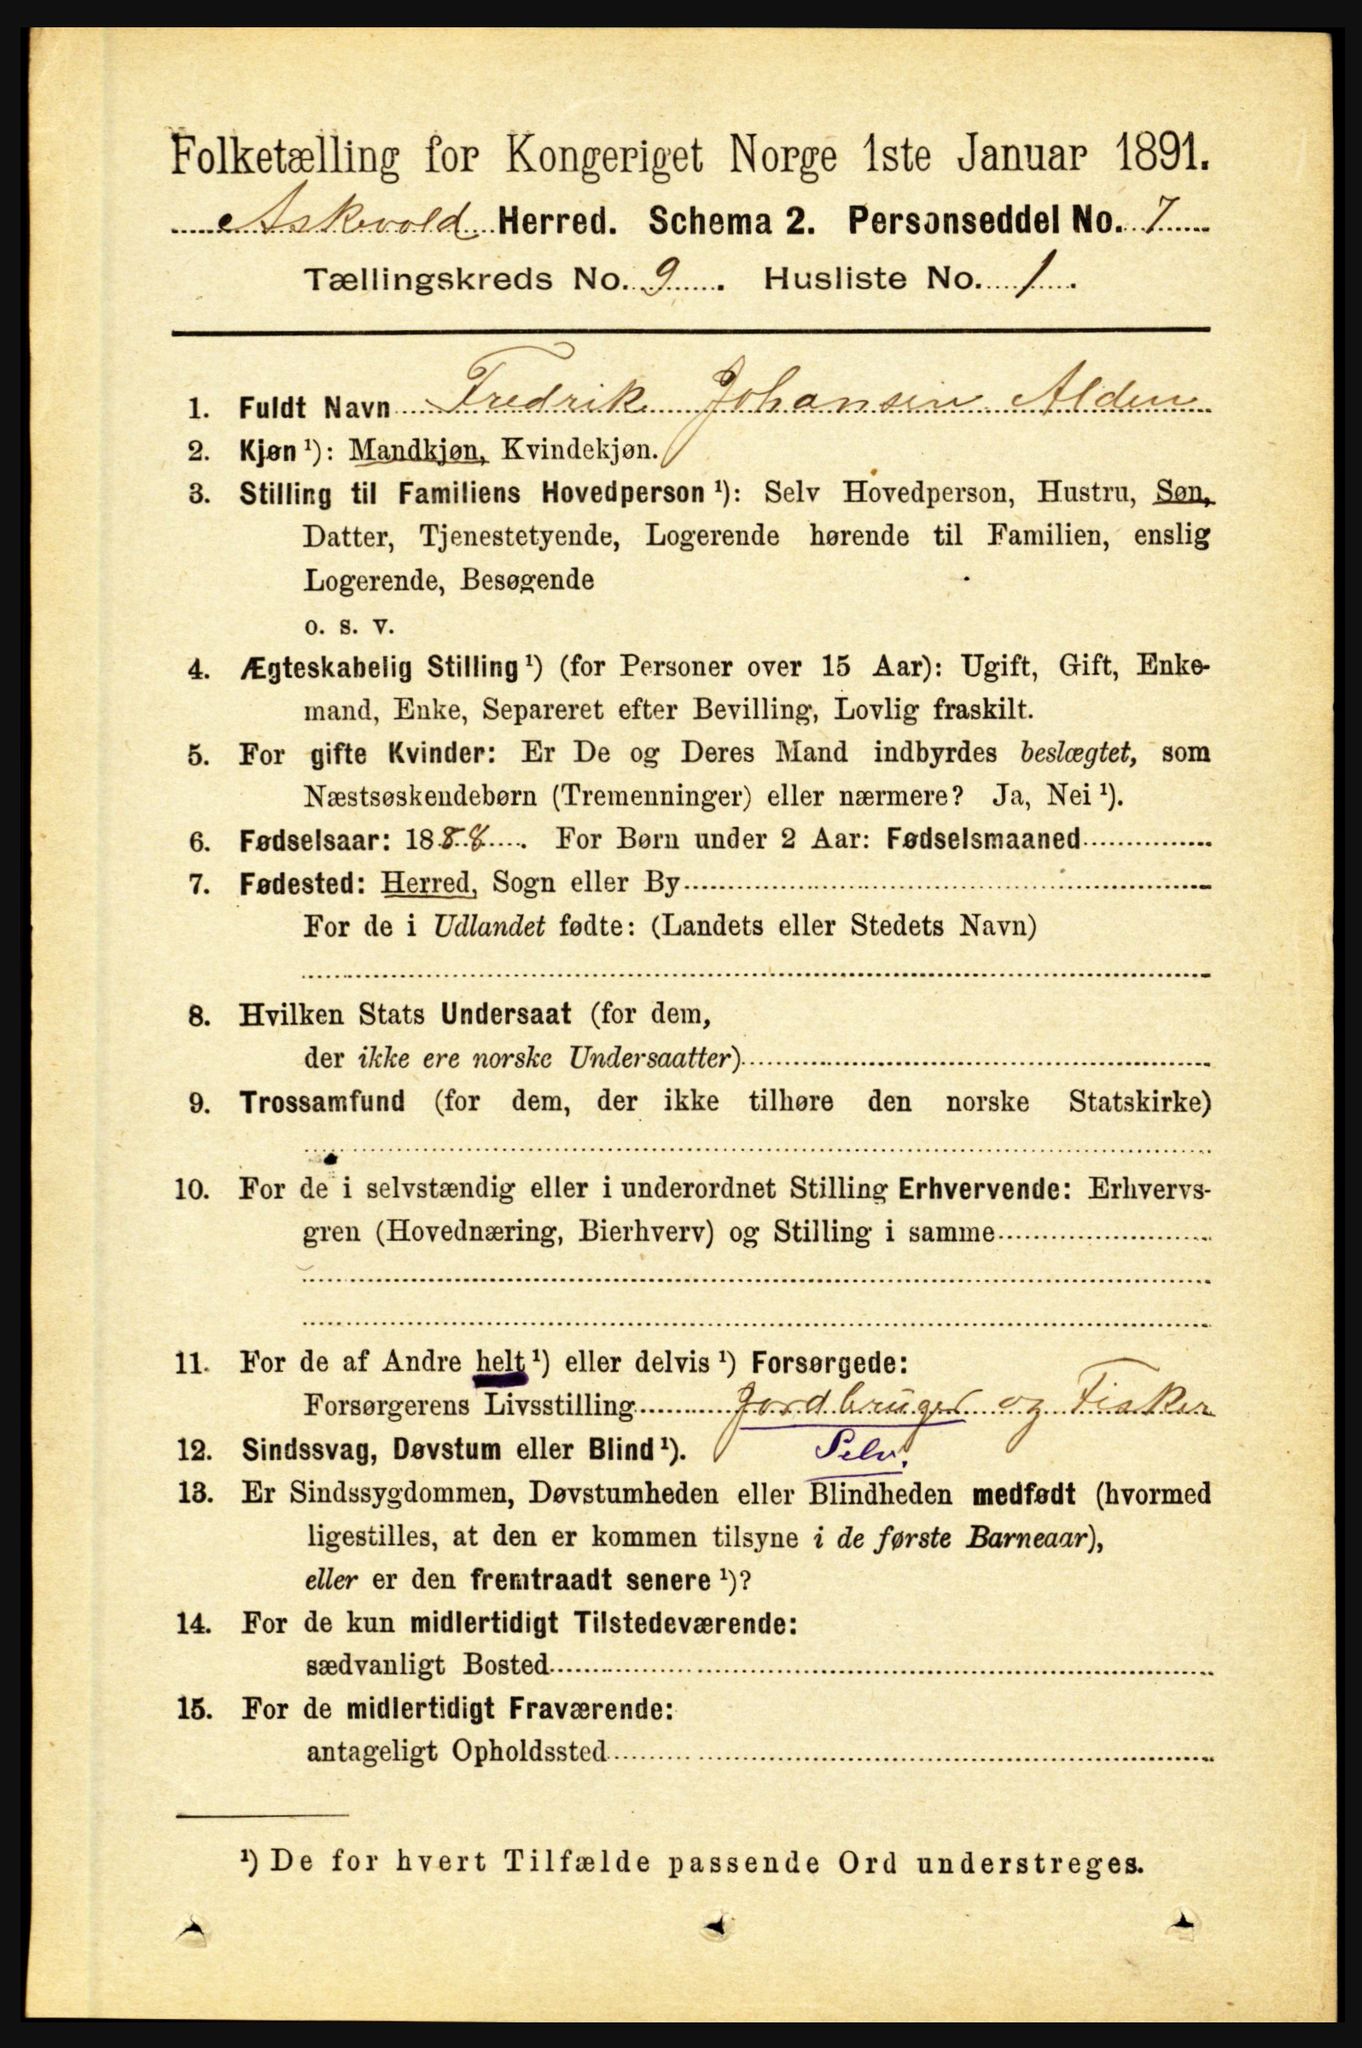 Folketælling for Kongeriget Norge 1ste Januar 1891.
Askevold Herred. Schema 2. Personseddel No. 7
Tællingskreds No. 9. Husliste No. 1.
1. Fuldt Navn Fredrik Johansen Alden
2. Kjøn ¹): Mandkjøn, Kvindekjøn.
3. Stilling til Familiens Hovedperson ¹): Selv Hovedperson, Hustru, Søn,
Datter, Tjenestetyende, Logerende hørende til Familien, enslig
Logerende, Besøgende
o. s. v.
4. Ægteskabelig Stilling ¹) (for Personer over 15 Aar): Ugift, Gift, Enke-
mand, Enke, Separeret efter Bevilling, Lovlig fraskilt.
5. For gifte Kvinder: Er De og Deres Mand indbyrdes beslægtet, som
Næstsøskendebørn (Tremenninger) eller nærmere? Ja, Nei ¹).
6. Fødselsaar: 1888. For Børn under 2 Aar: Fødselsmaaned
7. Fødested: Herred, Sogn eller By
For de i Udlandet fødte: (Landets eller Stedets Navn)
8. Hvilken Stats Undersaat (for dem,
der ikke ere norske Undersaatter)
9. Trossamfund (for dem, der ikke tilhøre den norske Statskirke)
10. For de i selvstændig eller i underordnet Stilling Erhvervende: Erhvervs-
gren (Hovednæring, Bierhverv) og Stilling i samme
11. For de af Andre helt ¹) eller delvis ¹) Forsørgede:
Forsørgerens Livsstilling Jordbruger og Fisker
12. Sindssvag, Døvstum eller Blind ¹). Selv.
13. Er Sindssygdommen, Døvstumheden eller Blindheden medfødt (hvormed
ligestilles, at den er kommen tilsyne i de første Barneaar),
eller er den fremtraadt senere ¹)?
14. For de kun midlertidigt Tilstedeværende:
sædvanligt Bosted
15. For de midlertidigt Fraværende:
antageligt Opholdssted
¹) De for hvert Tilfælde passende Ord understreges.